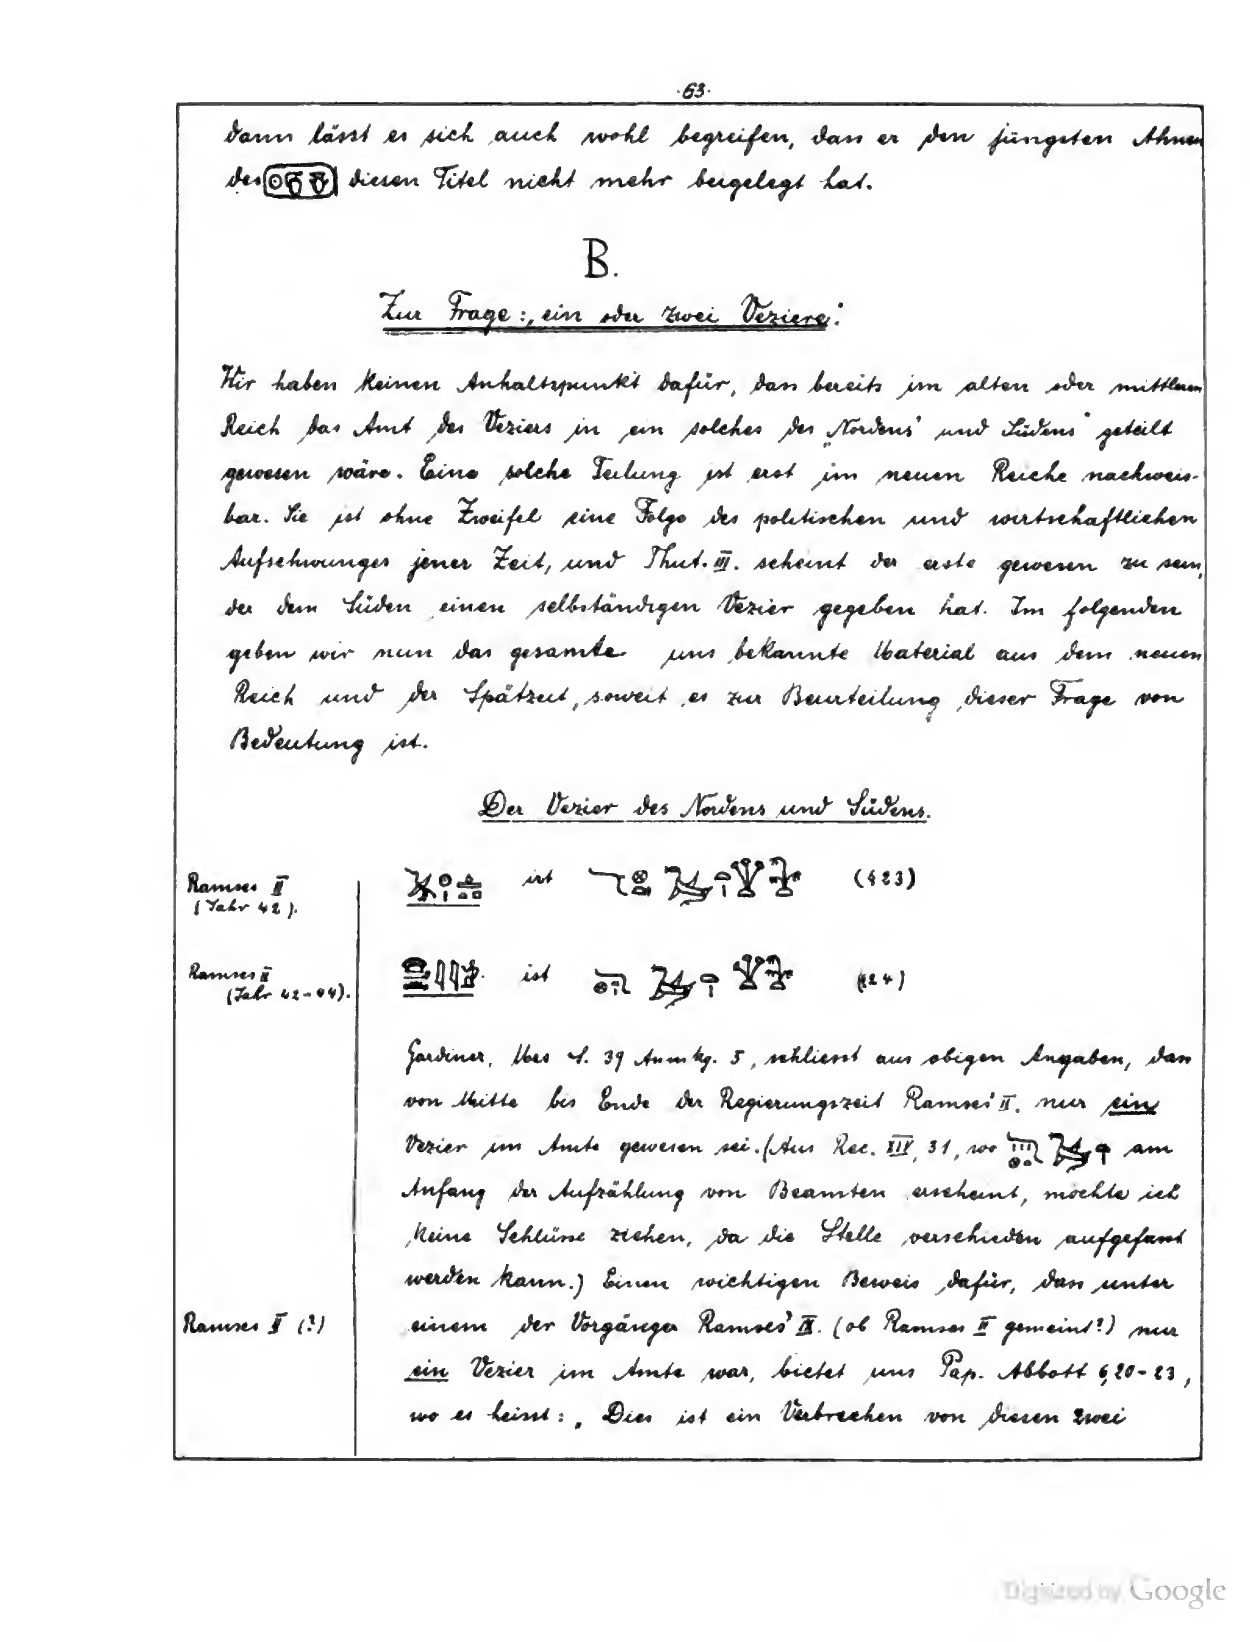 ·63·
dann lässt es sich auch wohl begreifen, dass er den jüngsten Ahnen
des diesen Titel nicht mehr beigelegt hat.
B.
Zur Frage: „ein oder zwei Veziere“.
Wir haben keinen Anhaltspunkt dafür, dass bereits im alten oder mittleren
Reich das Amt des Veziers in ein solches des „Nordens“ und Südens“ geteilt
gewesen wäre. Eine solche Teilung ist erst im neuen Reiche nachweis-
bar. Sie ist ohne Zweifel eine Folge des politischen und wirtschaftlichen
Aufschwunges jener Zeit, und Thut. III. scheint der erste gewesen zu sein,
der dem Süden einen selbständigen Vezier gegeben hat. Im folgenden
geben wir nun das gesamte uns bekannte Material aus dem neuen
Reich und der Spätzeit, soweit es zur Beurteilung dieser Frage von
Bedeutung ist.
Der Vezier des Nordens und Südens.
Ramses II
(Jahr 42).
ist (§23)
Ramses II
(Jahr 42-44).
ist (§24)
Gardiner, Mes S. 39 Anmkg. 5, schliesst aus obigen Angaben, dass
von Mitte bis Ende der Regierungszeit Ramses' II. nur ein
Vezier im Amte gewesen sei. (Aus Rec. XIV, 31, wo am
Anfang der Aufzählung von Beamten erscheint, möchte ich
keine Schlüsse ziehen, da die Stelle verschieden aufgefasst
werden kann.) Einen wichtigen Beweis dafür, dass unter
Ramses II (?)
einem der Vorgänger Ramses' IX. (ob Ramses II gemeint?) nur
ein Vezier im Amte war, bietet uns Pap. Abbott 6,20-23,
wo es heisst: „Dies ist ein Verbrechen von diesen zwei
Digitized by Google